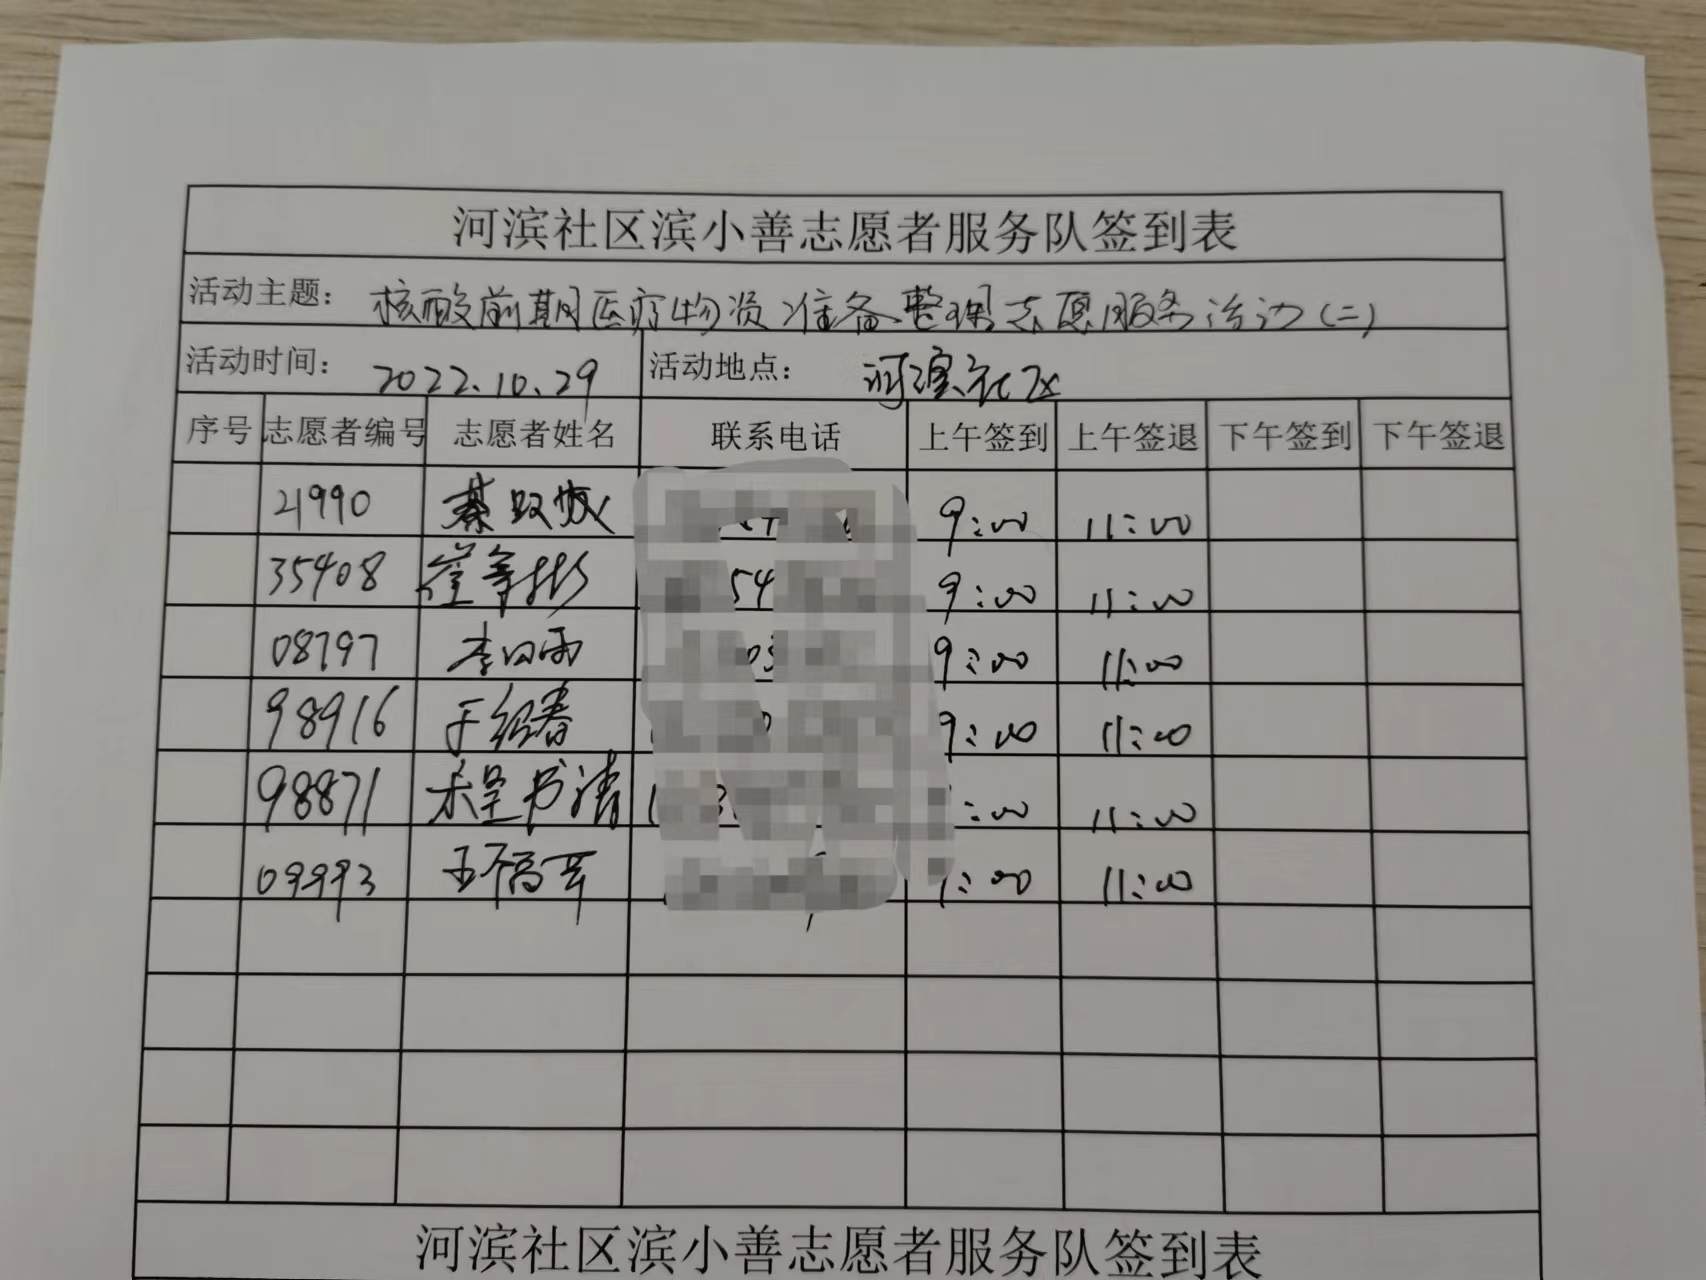 河滨社区滨小善志愿者服务队签到表
活动主题：核酸前期医疗物资准备整理志愿服务活动(二)
活动时间：2022.10.29 活动地点：河滨社区
序号 志愿者编号 志愿者姓名 联系电话 上午签到 上午签退 下午签到 下午签退
21990 9:00 11:00
35408 9:00 11:00
08797 9:00 11:00
98916 于绍春 9:00 11:00
98871 :00 11:00
09993 王福芹 :00 11:00
河滨社区滨小善志愿者服务队签到表